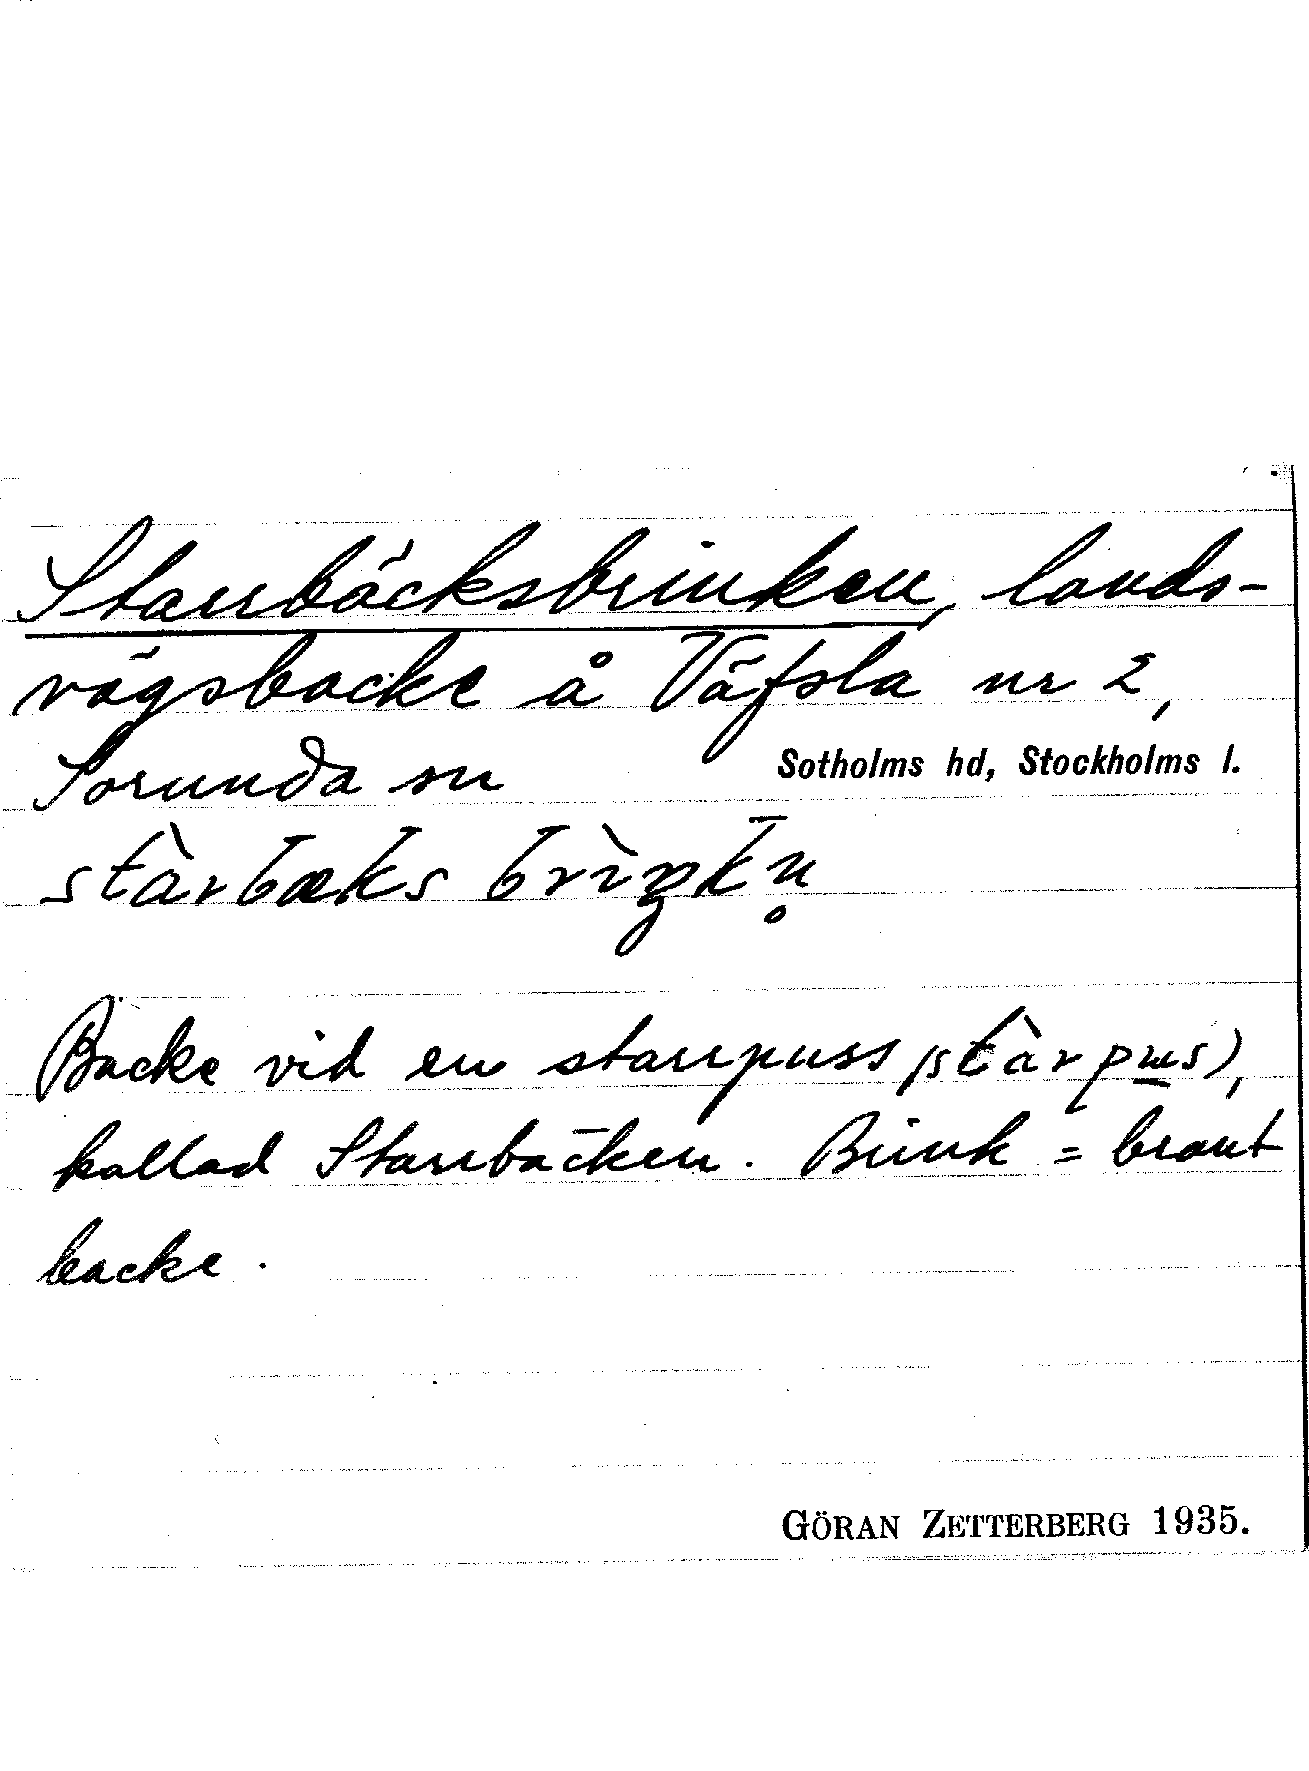 Starrbäcksbrinken, lands-
vägsbacke å Väfsla nr 2,
Sorunda sn Sotholms hd, Stockholms l.
stàrbæks brìŋkn̥
Backe vid en starrpuss (stàrpɯs),
kallad Starrbäcken. Brink = brant
backe.
GÖRAN ZETTERBERG 1935.